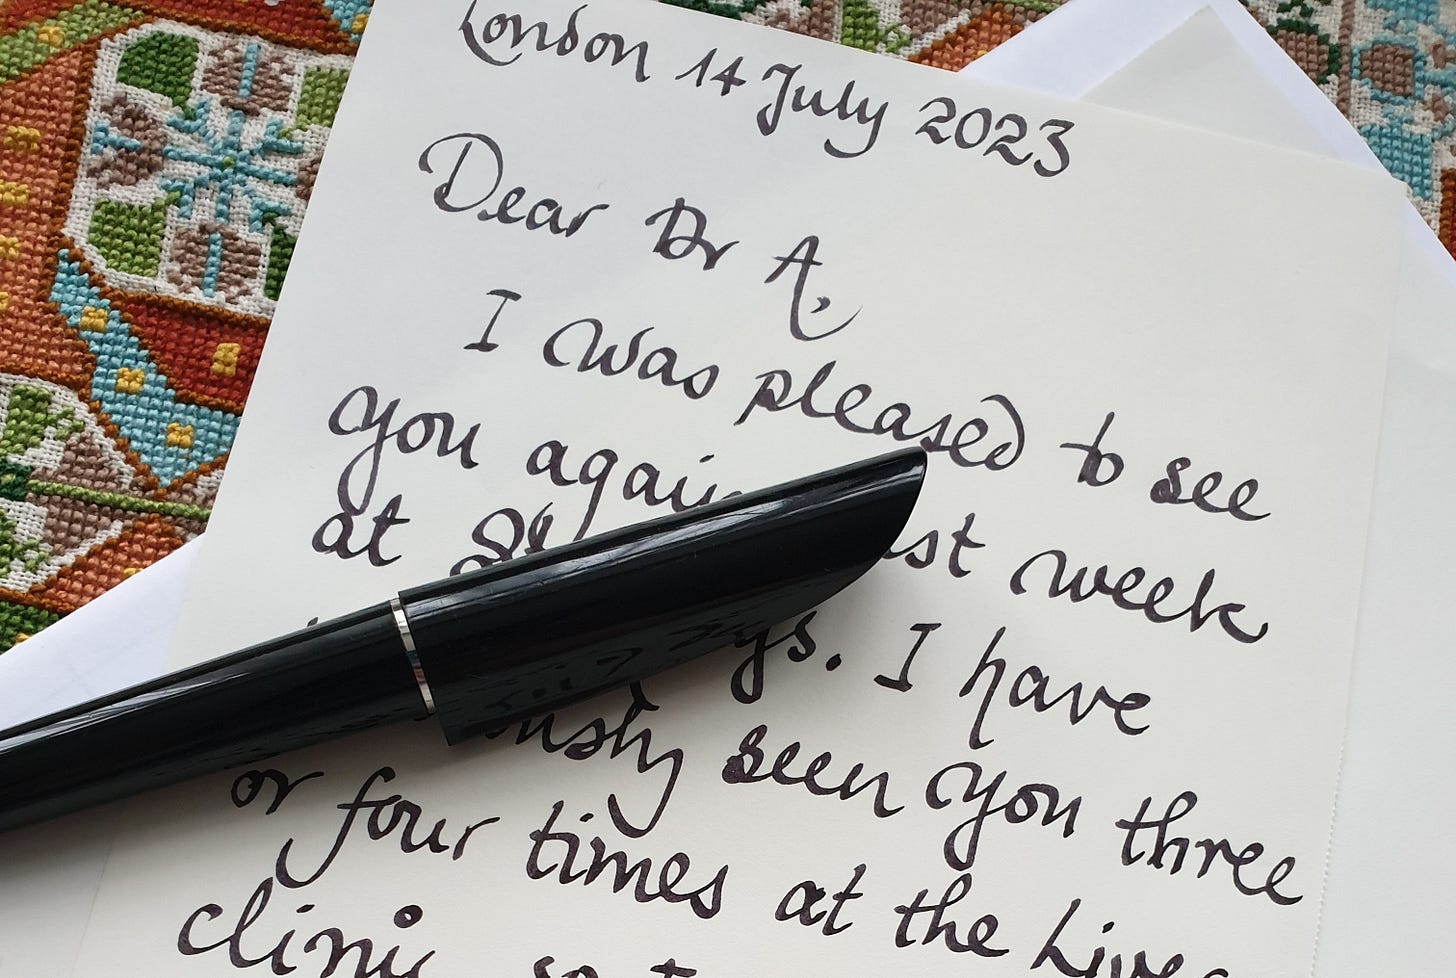 London 14 July 2023
Dear Dr A.
I was pleased to see
you again
at last week
I have
seen you three
or four times at the Liver
clinic